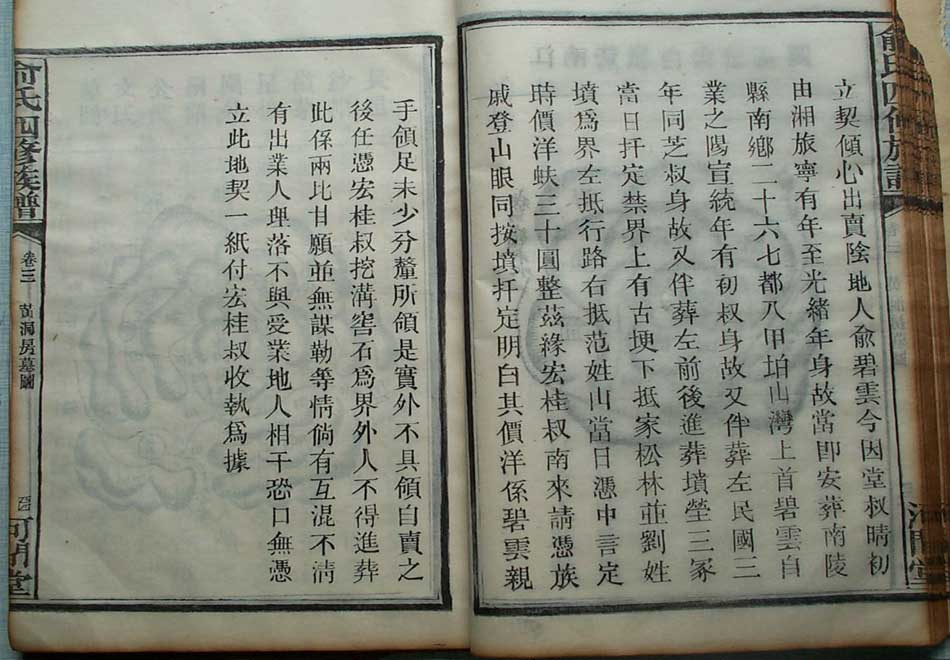 俞氏四修族譜
立契傾心出賣陰地人俞碧雲今因堂叔晴初
由湘旅寧有年至光緒年身故當即安葬南陵
縣南鄉二十六七都八甲坦山灣上首碧雲自
業之陽宣統年有初叔身故又伴葬左民國三
年同芝叔身故又伴葬左前後進葬墳塋三冢
當日扦定禁界上有古埂下抵家松林並劉姓
墳爲界左抵行路右抵范姓山當日憑中言定
時價洋蚨三十圓整茲緣宏桂叔南來請憑族
戚登山眼同按墳扦定明白其價洋係碧雲親
手領足未少分釐所領是實外不具領自賣之
後任憑宏桂叔挖溝窖石爲界外人不得進葬
此係兩比甘願並無謀勒等情倘有互混不清
有出業人理落不與受業地人相干恐口無憑
立此地契一紙付宏桂叔收執爲據
俞氏四修族譜
卷三
洞房墓圖
河間堂